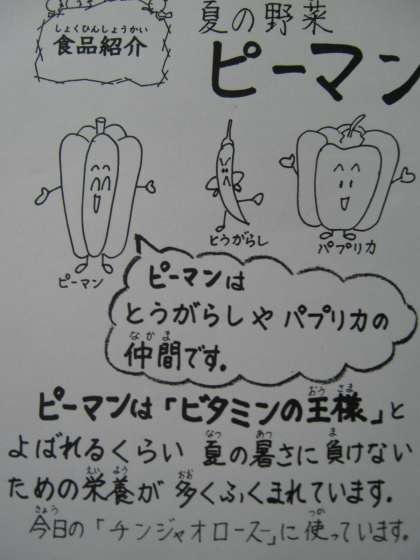 しょくひんしょうかい
食品紹介
夏の野菜
ピーマン
ピーマン
とうがらし
パプリカ
ピーマンは
とうがらしや パプリカの
なかま
仲間です。
おう さま
ピーマンは「ビタミンの王様」と
なつ あつ ま
よばれるくらい 夏の暑さに 負けない
えい よう おお
ための栄養が 多くふくまれています。
きょう つか
今日の「チンジャオロース」に 使っています。